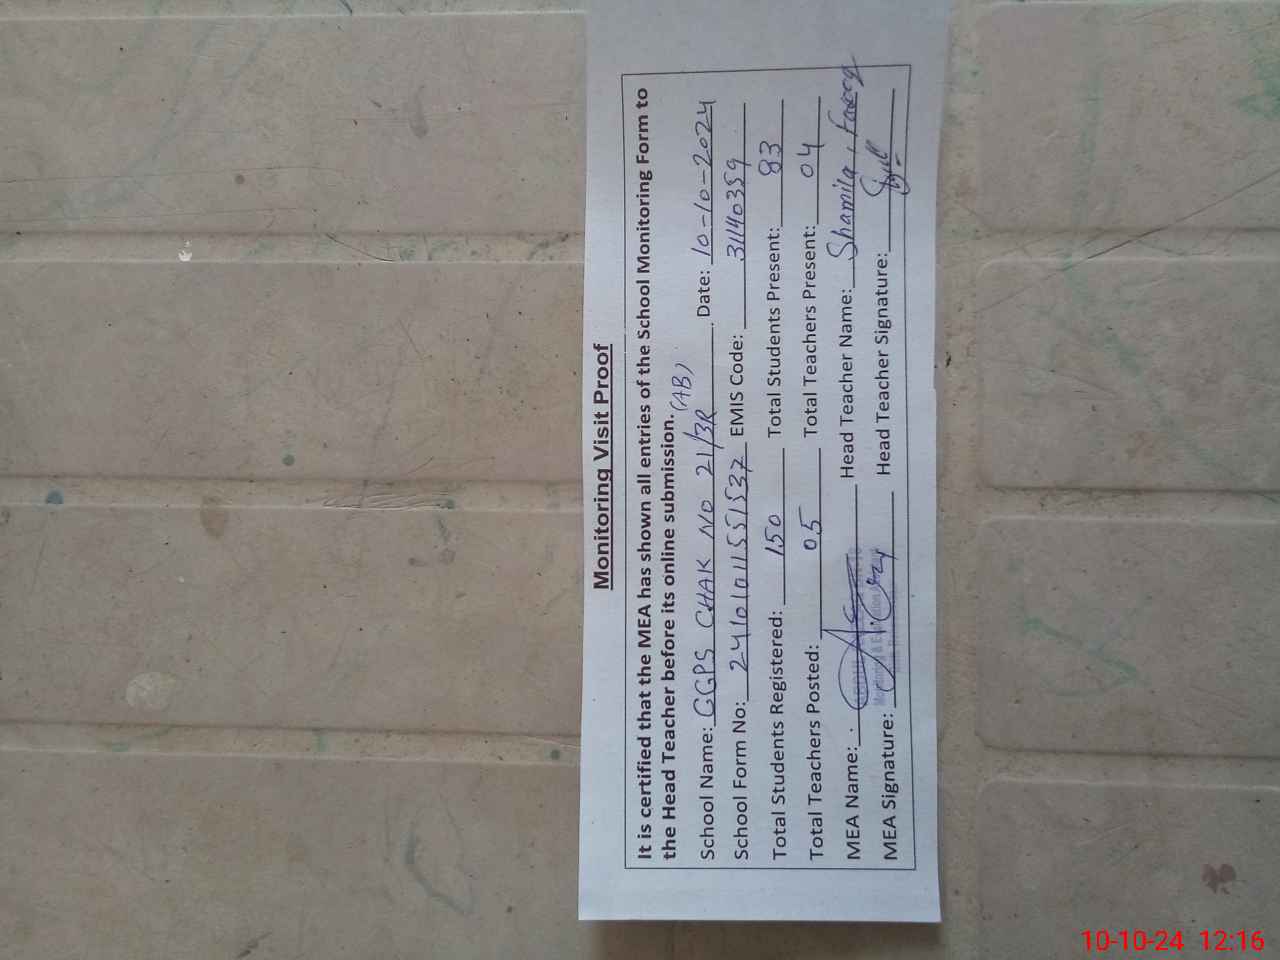 Monitoring Visit Proof
It is certified that the MEA has shown all entries of the School Monitoring Form to
the Head Teacher before its online submission. (AB)
School Name: GGPS CHAK NO 21/3R Date: 10-10-2024
School Form No: 24101011551537 EMIS Code: 31140359
Total Students Registered: 150 Total Students Present: 83
Total Teachers Posted: 05 Total Teachers Present: 04
MEA Name: Head Teacher Name: Shamila
MEA Signature: Head Teacher Signature:
10-10-24 12:16